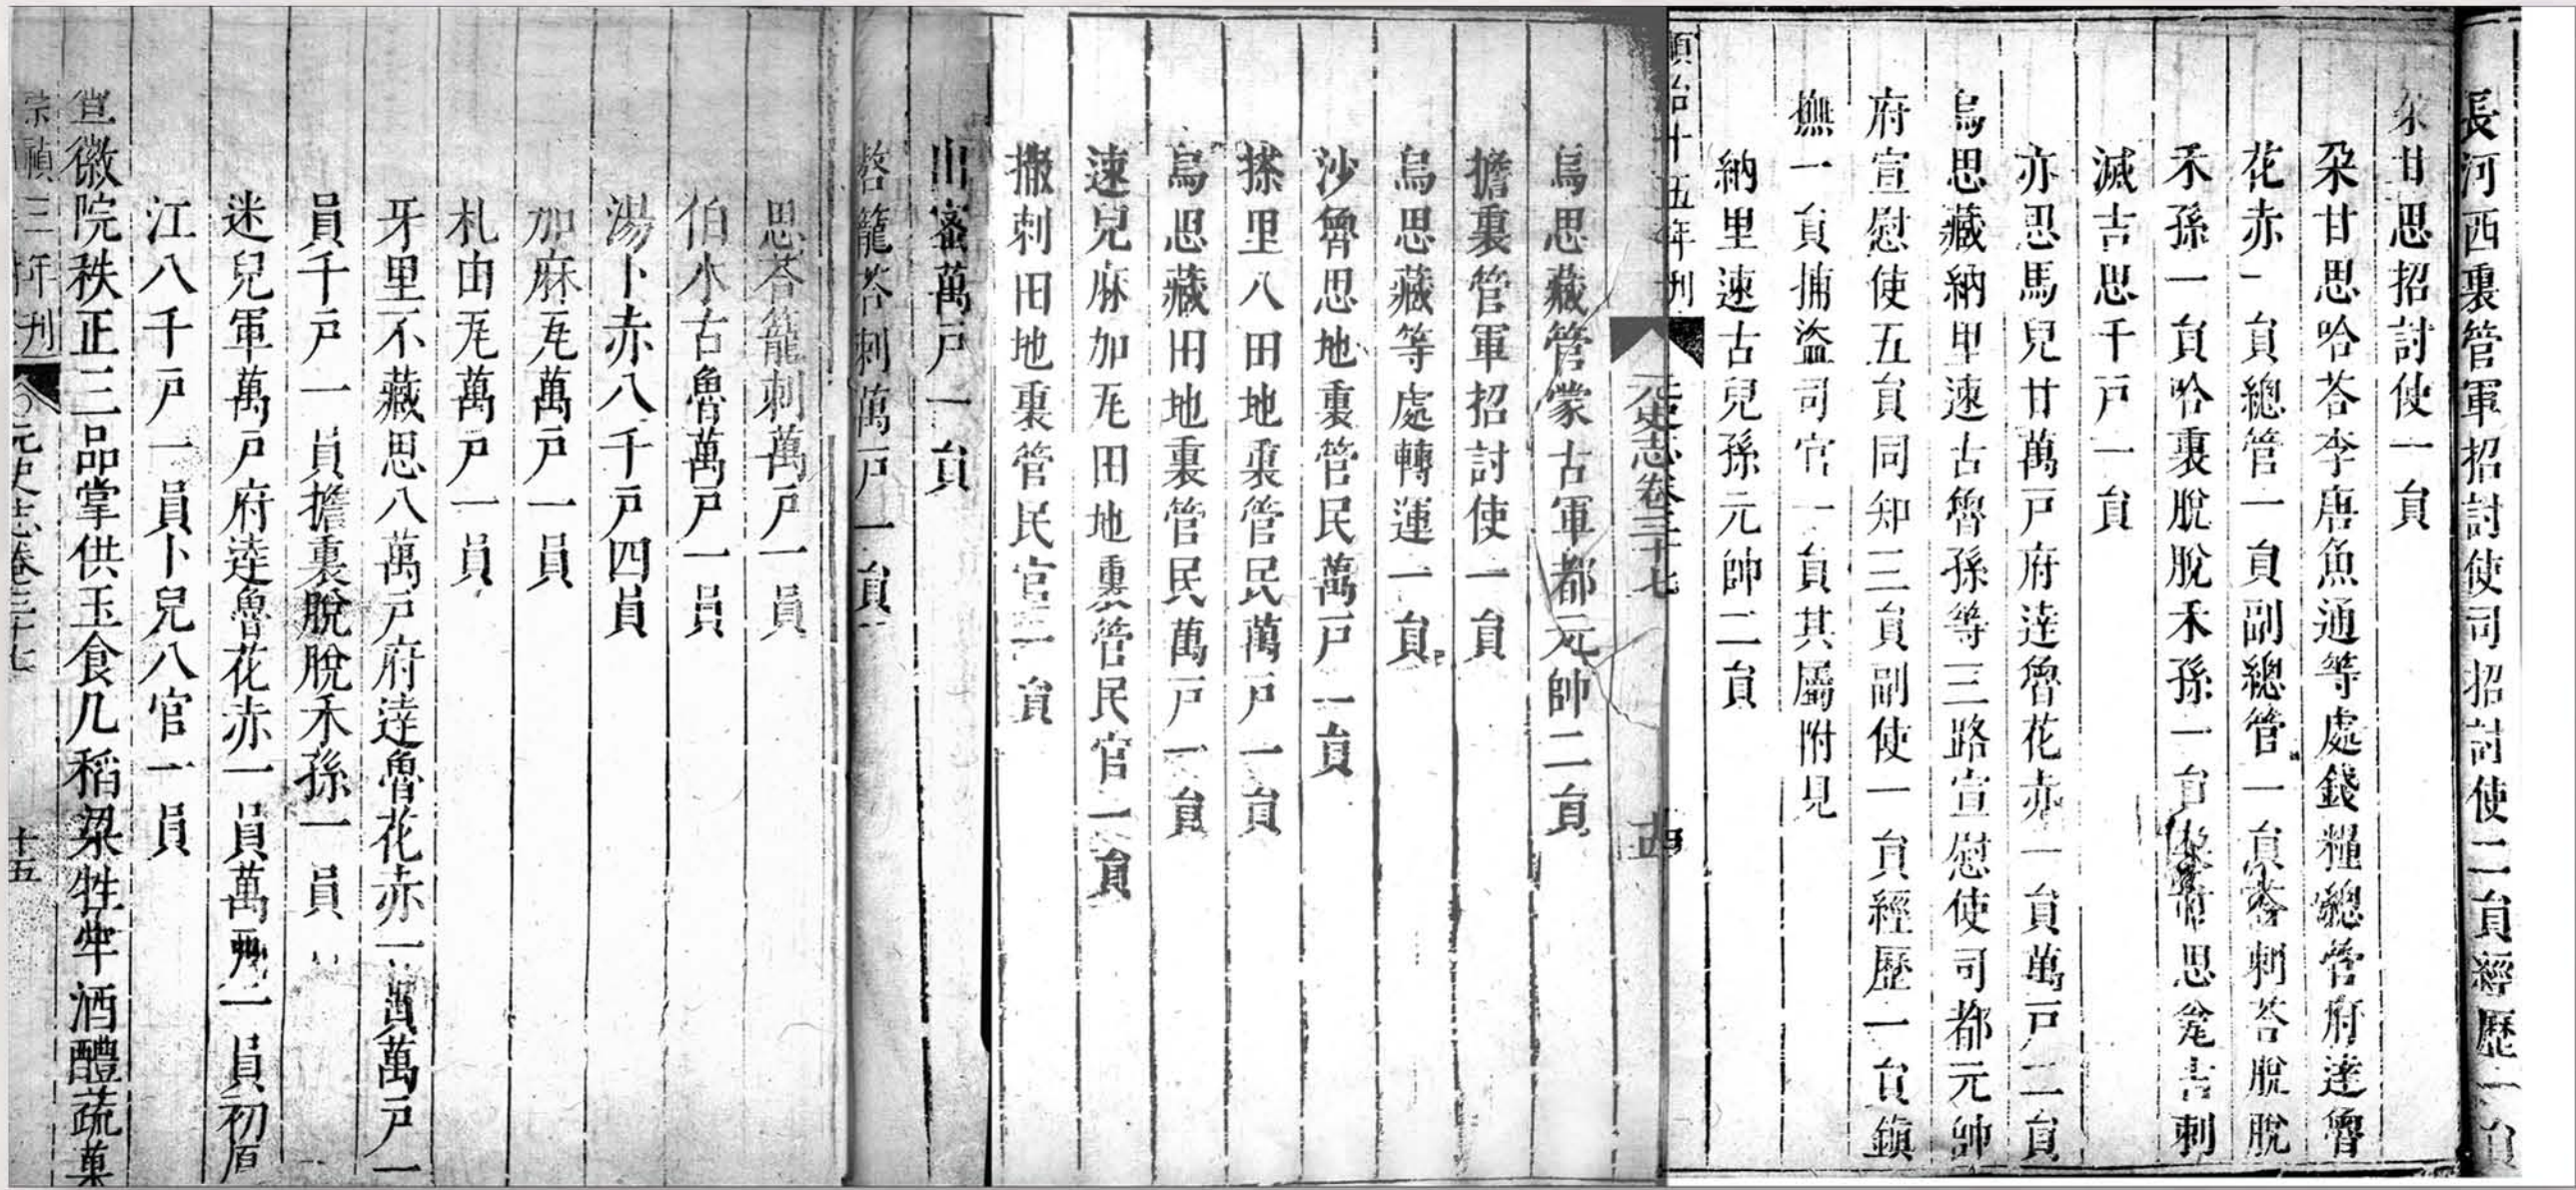 長河西裏管軍招討使司招討使二員經歷一員
朶甘思招討使一員
朶甘思哈荅李唐魚通等處錢糧總管府達魯
花赤一員總管一員副總管一員荅剌荅脫脫
禾孫一員哈裏脫脫禾孫一員 思竟吉剌
滅吉思千戶一員
亦思馬兒甘萬戶府達魯花赤一員萬戶二員
烏思藏納里速古魯孫等三路宣慰使司都元帥
府宣慰使五員同知二員副使一員經歷一員鎮
撫一員捕盜司官一員其屬附見
納里速古兒孫元帥二員
順治十五年刊
元史志卷三十七
十四
烏思藏管蒙古軍都元帥二員
擔裏管軍招討使一員
烏思藏等處轉運一員
沙魯思地裏管民萬戶一員
搽里八田地裏管民萬戶一員
烏思藏田地裏管民萬戶一員
速兒麻加瓦田地裏管民官一員
撒剌田地裏管民官一員
出密萬戶一員
嶅籠荅剌萬戶一員
思荅籠剌萬戶一員
伯木古魯萬戶一員
湯卜赤八千戶四員
加麻瓦萬戶一員
札由瓦萬戶一員
牙里不藏思八萬戶府達魯花赤一員萬戶一
員千戶一員擔裏脫脫禾孫一員
迷兒軍萬戶府達魯花赤一員萬戶一員初厚
江八千戶一員卜兒八官一員
宣徽院秩正三品掌供玉食凡稻粱牲牢酒醴蔬菓
崇禎三年刊
元史志卷三十七
十五